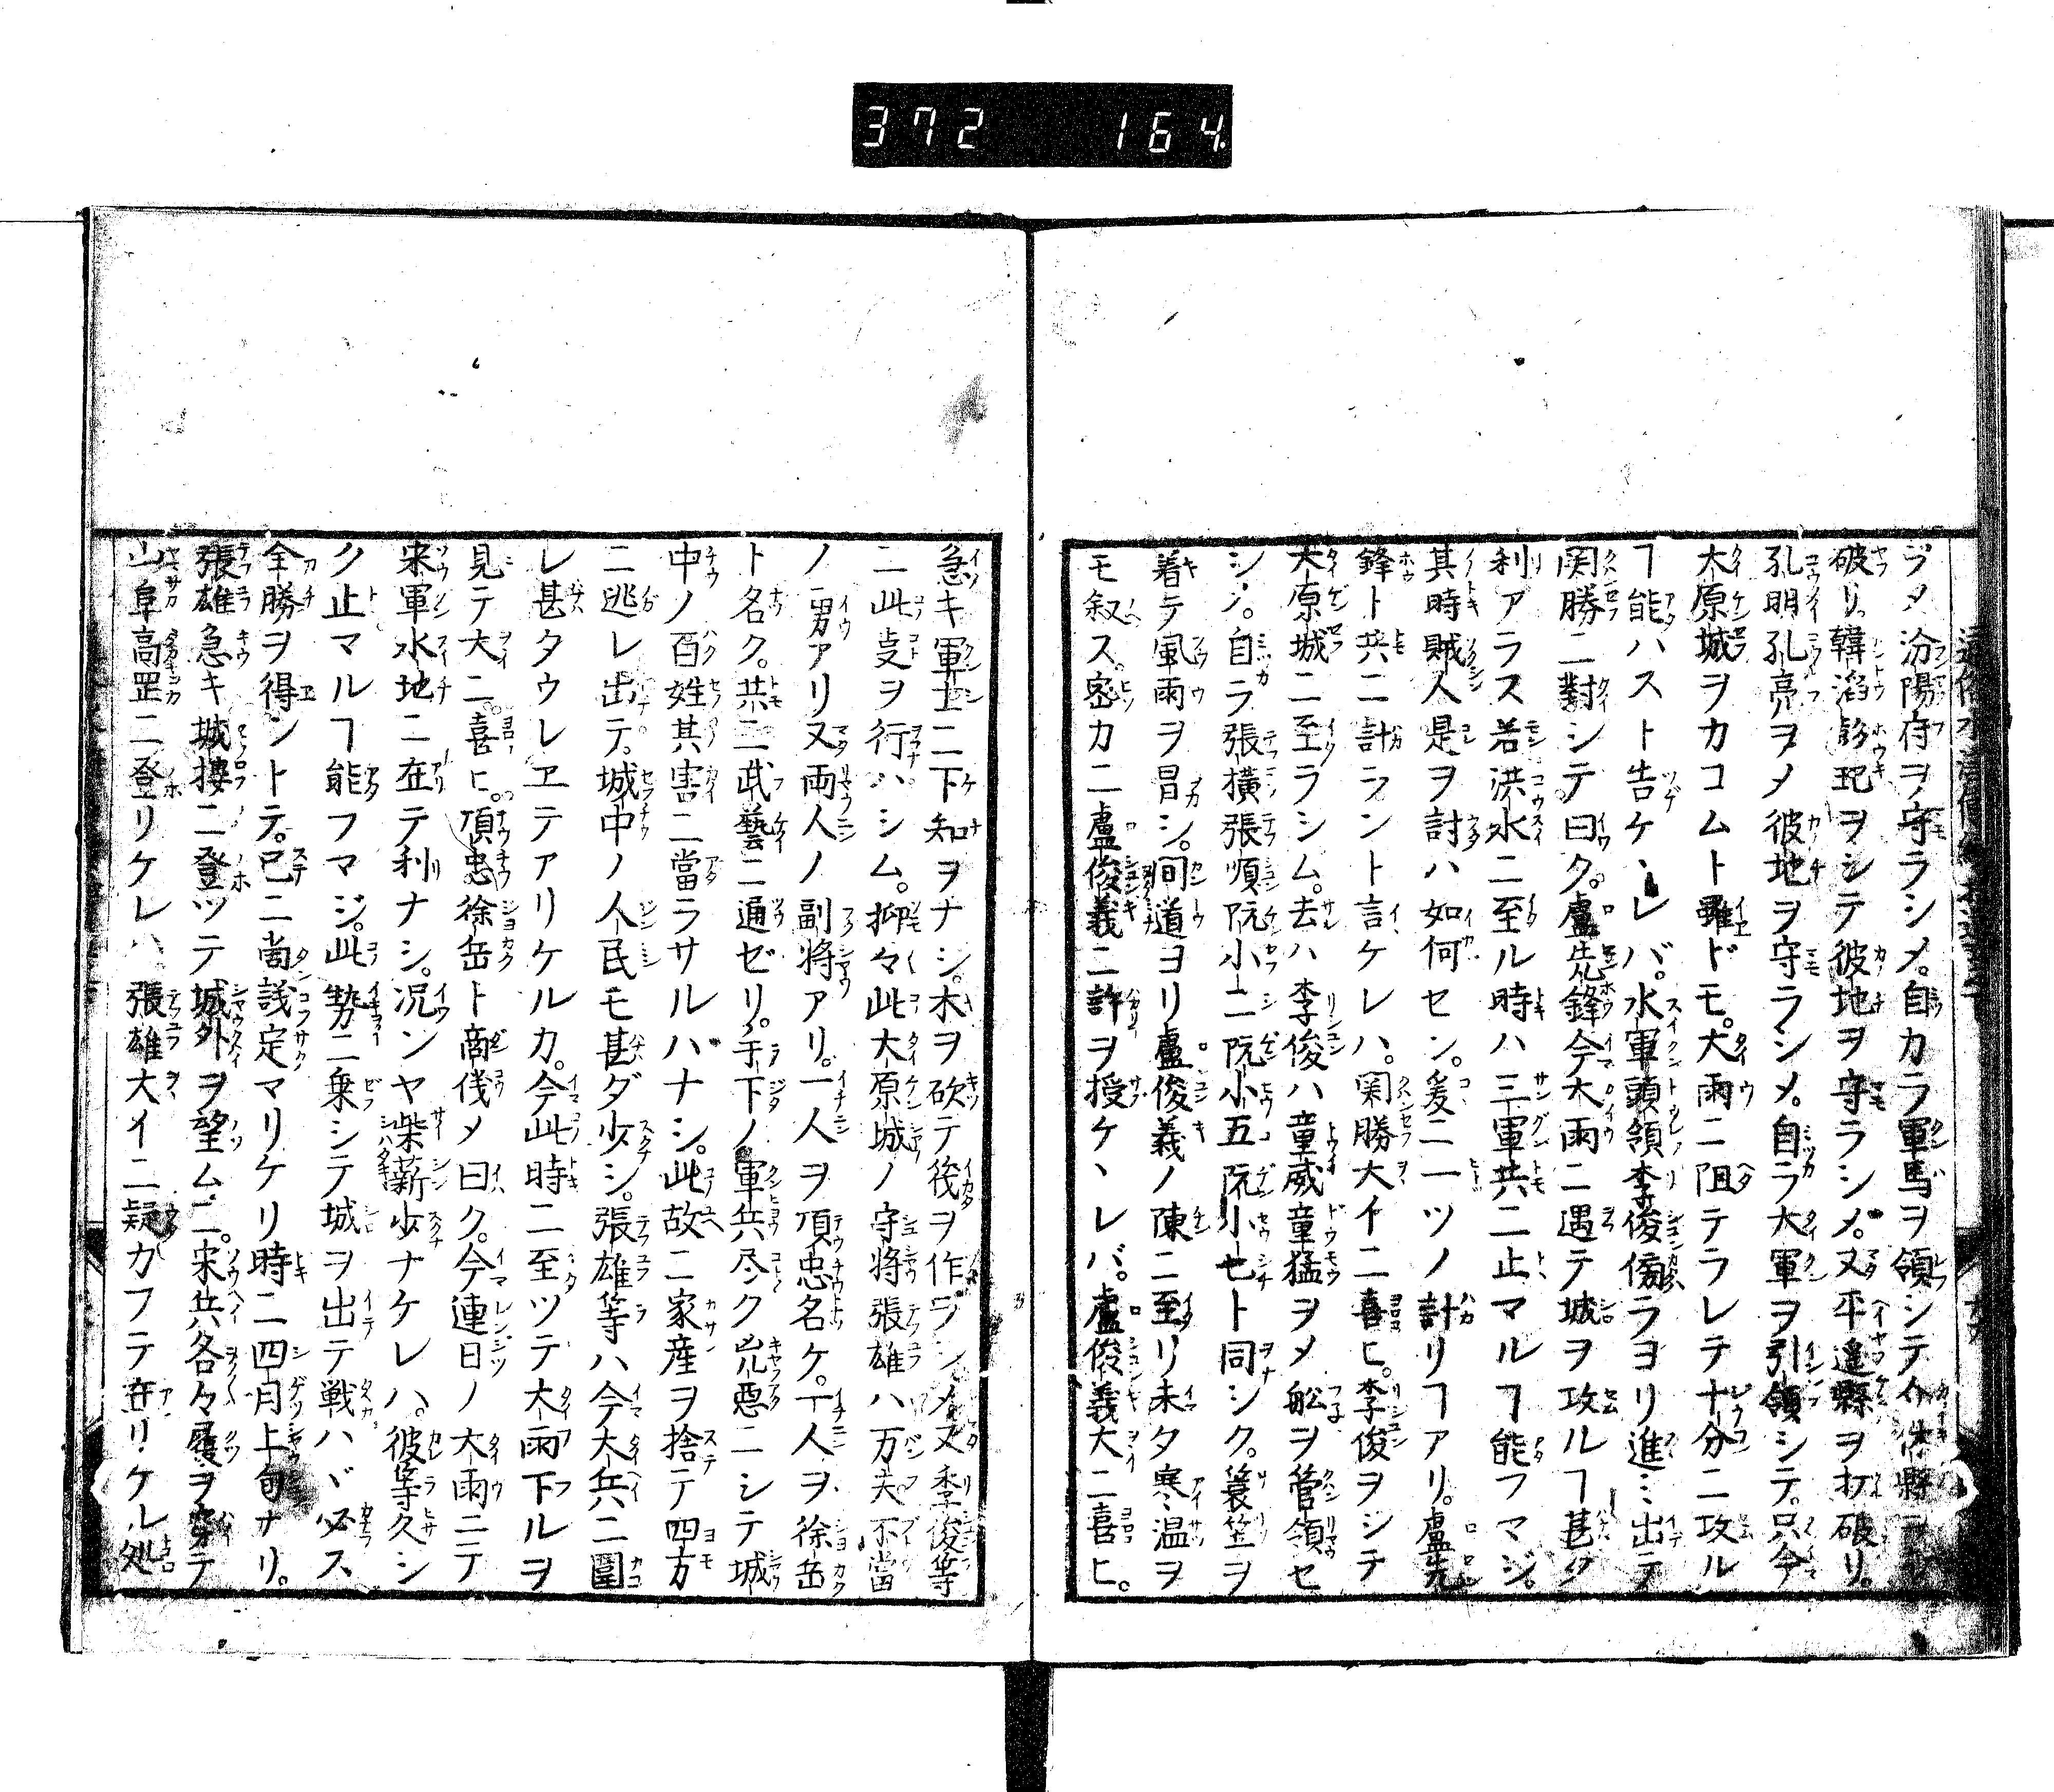 372 164
ヅメ汾陽府ヲ守ラシメ。自カラ軍馬ヲ領シテ介休縣ヲ
破リ。韓滔彭玘ヲシテ彼地ヲ守ラシメ。又平遥縣ヲ打破リ。
孔明孔亮ヲメ彼地ヲ守ラシメ。自ラ大軍ヲ引領シテ。只今
大原城ヲカコムト雖ドモ。大雨ニ阻テラレテ十分ニ攻ル
ヿ能ハスト告ケヽレバ。水軍頭領李俊傍ラヨリ進ミ出テ
関勝ニ對シテ曰ク。盧先鋒今大雨ニ遇テ城ヲ攻ルヿ甚ダ
利アラス若洪水ニ至ル時ハ三軍共ニ止マルヿ能フマジ。
其時賊人是ヲ討ハ如何セン。爰ニ一ツノ計リヿアリ。盧先
鋒ト共ニ計ラント言ケレハ。関勝大イニ喜ヒ。李俊ヲシテ
大原城ニ至ラシム。去ハ李俊ハ童威童猛ヲメ舩ヲ管領セ
シメ。自ラ張橫張順阮小二阮小五阮小七ト同シク。簑笠ヲ
着テ風雨ヲ冒シ。間道ヨリ盧俊義ノ陳ニ至リ未タ寒温ヲ
モ叙ス。密カニ盧俊義ニ許ヲ授ケヽレバ。盧俊義大ニ喜ヒ。
急キ軍士ニ下知ヲナシ。木ヲ砍テ後ヲ作ラシメ又李俊等
ニ此叓ヲ行ハシム。抑々此大原城ノ守將張雄ハ万夫不當
ノ勇アリ又両人ノ副將アリ。一人ヲ項忠名ケ。一人ヲ徐岳
ト名ク。共ニ武藝ニ通ゼリ。手下ノ軍兵尽ク兇惡ニシテ城
中ノ百姓其害ニ當ラサルハナシ。此故ニ家産ヲ捨テ四方
ニ逃レ出テ。城中ノ人民モ甚ダ少シ。張雄等ハ今大兵ニ圍
レ甚タウレヱテアリケルカ。今此時ニ至ツテ大雨下ルヲ
見テ大ニ喜ヒ。項忠徐岳ト商儀メ曰ク。今連日ノ大雨ニテ
宋軍水地ニ在テ利ナシ。况ンヤ柴薪少ナケレハ。彼等久シ
ク止マルヿ能フマジ。此勢ニ乗シテ城ヲ出テ戦ハヾ必ス
全勝ヲ得ントテ。已ニ啇議定マリケリ時ニ四月上旬ナリ。
張雄急キ城樓ニ登ツテ城外ヲ望ムニ。宋兵各々屐ヲ穿テ
山阜高罡ニ登リケレハ張雄大イニ疑カフテ在リケル処